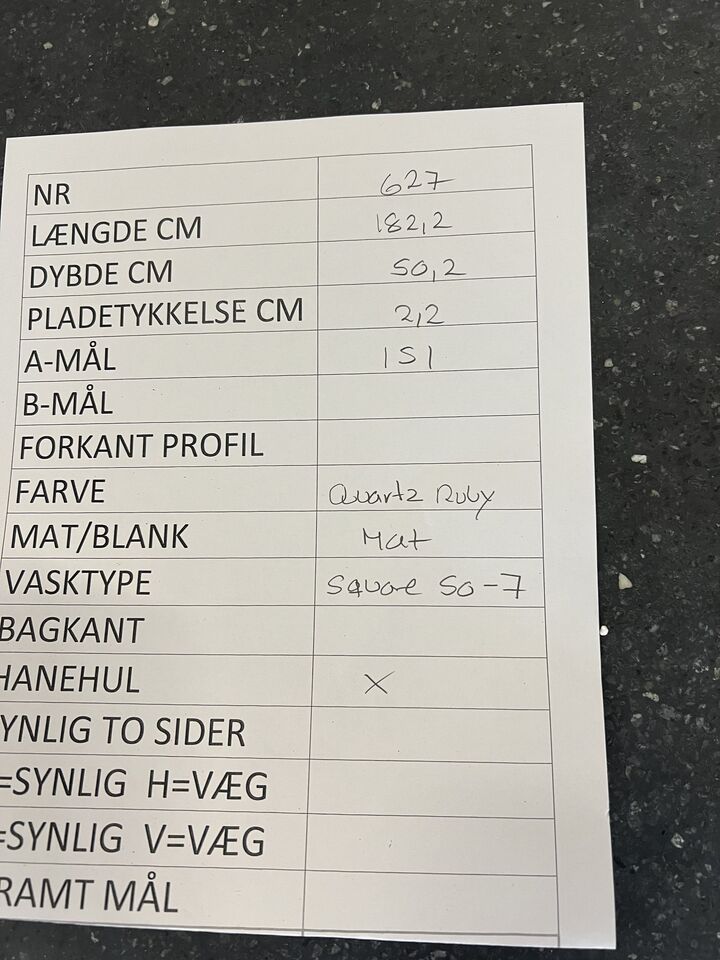 NR 627
LÆNGDE CM 182,2
DYBDE CM 50,2
PLADETYKKELSE CM 2,2
A-MÅL 151
B-MÅL
FORKANT PROFIL
FARVE Quartz Ruby
MAT/BLANK Mat
VASKTYPE Square 50-7
BAGKANT
HANEHUL X
YNLIG TO SIDER
=SYNLIG H=VÆG
=SYNLIG V=VÆG
RAMT MÅL